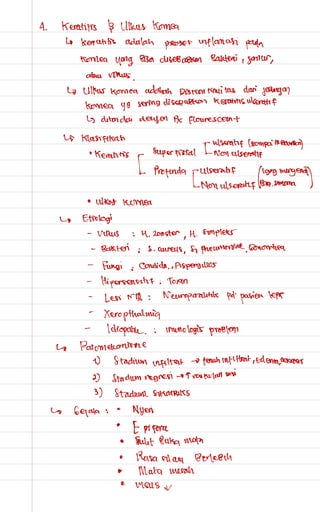 4. Keratitis & Ulkus Kornea
↳ Keratitis adalah proses inflamasi pada
Kornea yang bisa disebabkan Bakteri, jamur,
atau virus.
↳ Ulkus kornea adalah Diskontinuitas dari jaringan
kornea yg sering disebabkan keratitis ulseratif
↳ ditandai dengan Px flourescent
↳ Klasifikasi
• Keratitis Superfisial Ulseratif
Non ulseratif
Profunda Ulseratif
Non ulseratif
• Ulkus kornea
↳ Etiologi
- Virus : H. zooster, H. simpleks
- Bakteri : S. aureus, S. pneumoniae, Gonorrhea
- Fungi : Candida, Aspergillus
- Hipersensitif : Toxin
- Lesi N. VII : Neuroparalitik pd pasien
- Xeropthalmia
- Idiopatik : imunologis problem
↳ Patomekanisme
1) Stadium infiltrasi → infiltrat, Edema,
2) Stadium regresi → ↑ vaskularisasi
3) Stadium sikatriks
↳ Gejala : • Nyeri
• Epifora
• Sulit Buka mata
• Rasa silau Berlebih
• Mata merah
• Visus ↓